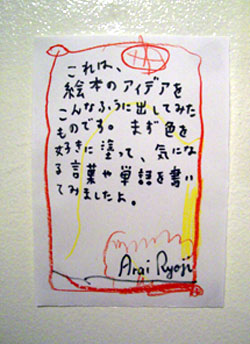 これは、
絵本のアイデアを
こんなふうに出してみた
ものです。まず色を
好きに塗って、気にな
る言葉や単語を書い
てみましたよ。
Arai Ryoji